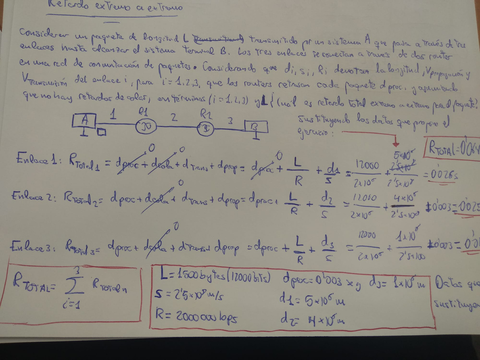 Retardo extremo a extremo
Considerar un paquete de longitud L transmitido por un sistema A que pasa a través de los
enlaces hasta alcanzar el sistema Terminal B. Los tres enlaces se conectan a través de dos router
en una red de conmutación de paquetes. Considerando que di, si, Ri denotan la longitud, Vpropagación y
Vtransmisión del enlace i, para i=1,2,3, que los routers retrasan cada paquete dproc, y
que no hay retardos de colas, en términos (i=1,2,3) y L ¿cuál es retardo total extremo a extremo para el paquete?
sustituyendo los datos que propone el
ejercicio
A 1 R1 2 R2 3 B
RTOTAL=0'0
Enlace 1: RTOTAL1 = dproc + dcola + dTrans + dprop = dproc + L/R + d1/S = 12000/2x10⁶ + 5x10⁶/2'5x10⁸ = 0'026s
Enlace 2: RTOTAL2 = dproc + dcola + dTrans + dprop = dproc + L/R + d2/S = 12000/2x10⁶ + 4x10⁶/2'5x10⁸ + 0'003 = 0'025
Enlace 3: RTOTAL3 = dproc + dcola + dTrans + dprop = dproc + L/R + d3/S = 12000/2x10⁶ + 1x10⁶/2'5x10⁸ + 0'003 = 0'0
RTOTAL = 3 ∑ i=1 RTOTALn
L = 1500 bytes (12000 bits) dproc = 0'003 s y d3 = 1x10⁶ m
S = 2'5x10⁸ m/s d1 = 5x10⁶ m
R = 2000000 bps d2 = 4x10⁶ m
Datos que
sustituyen